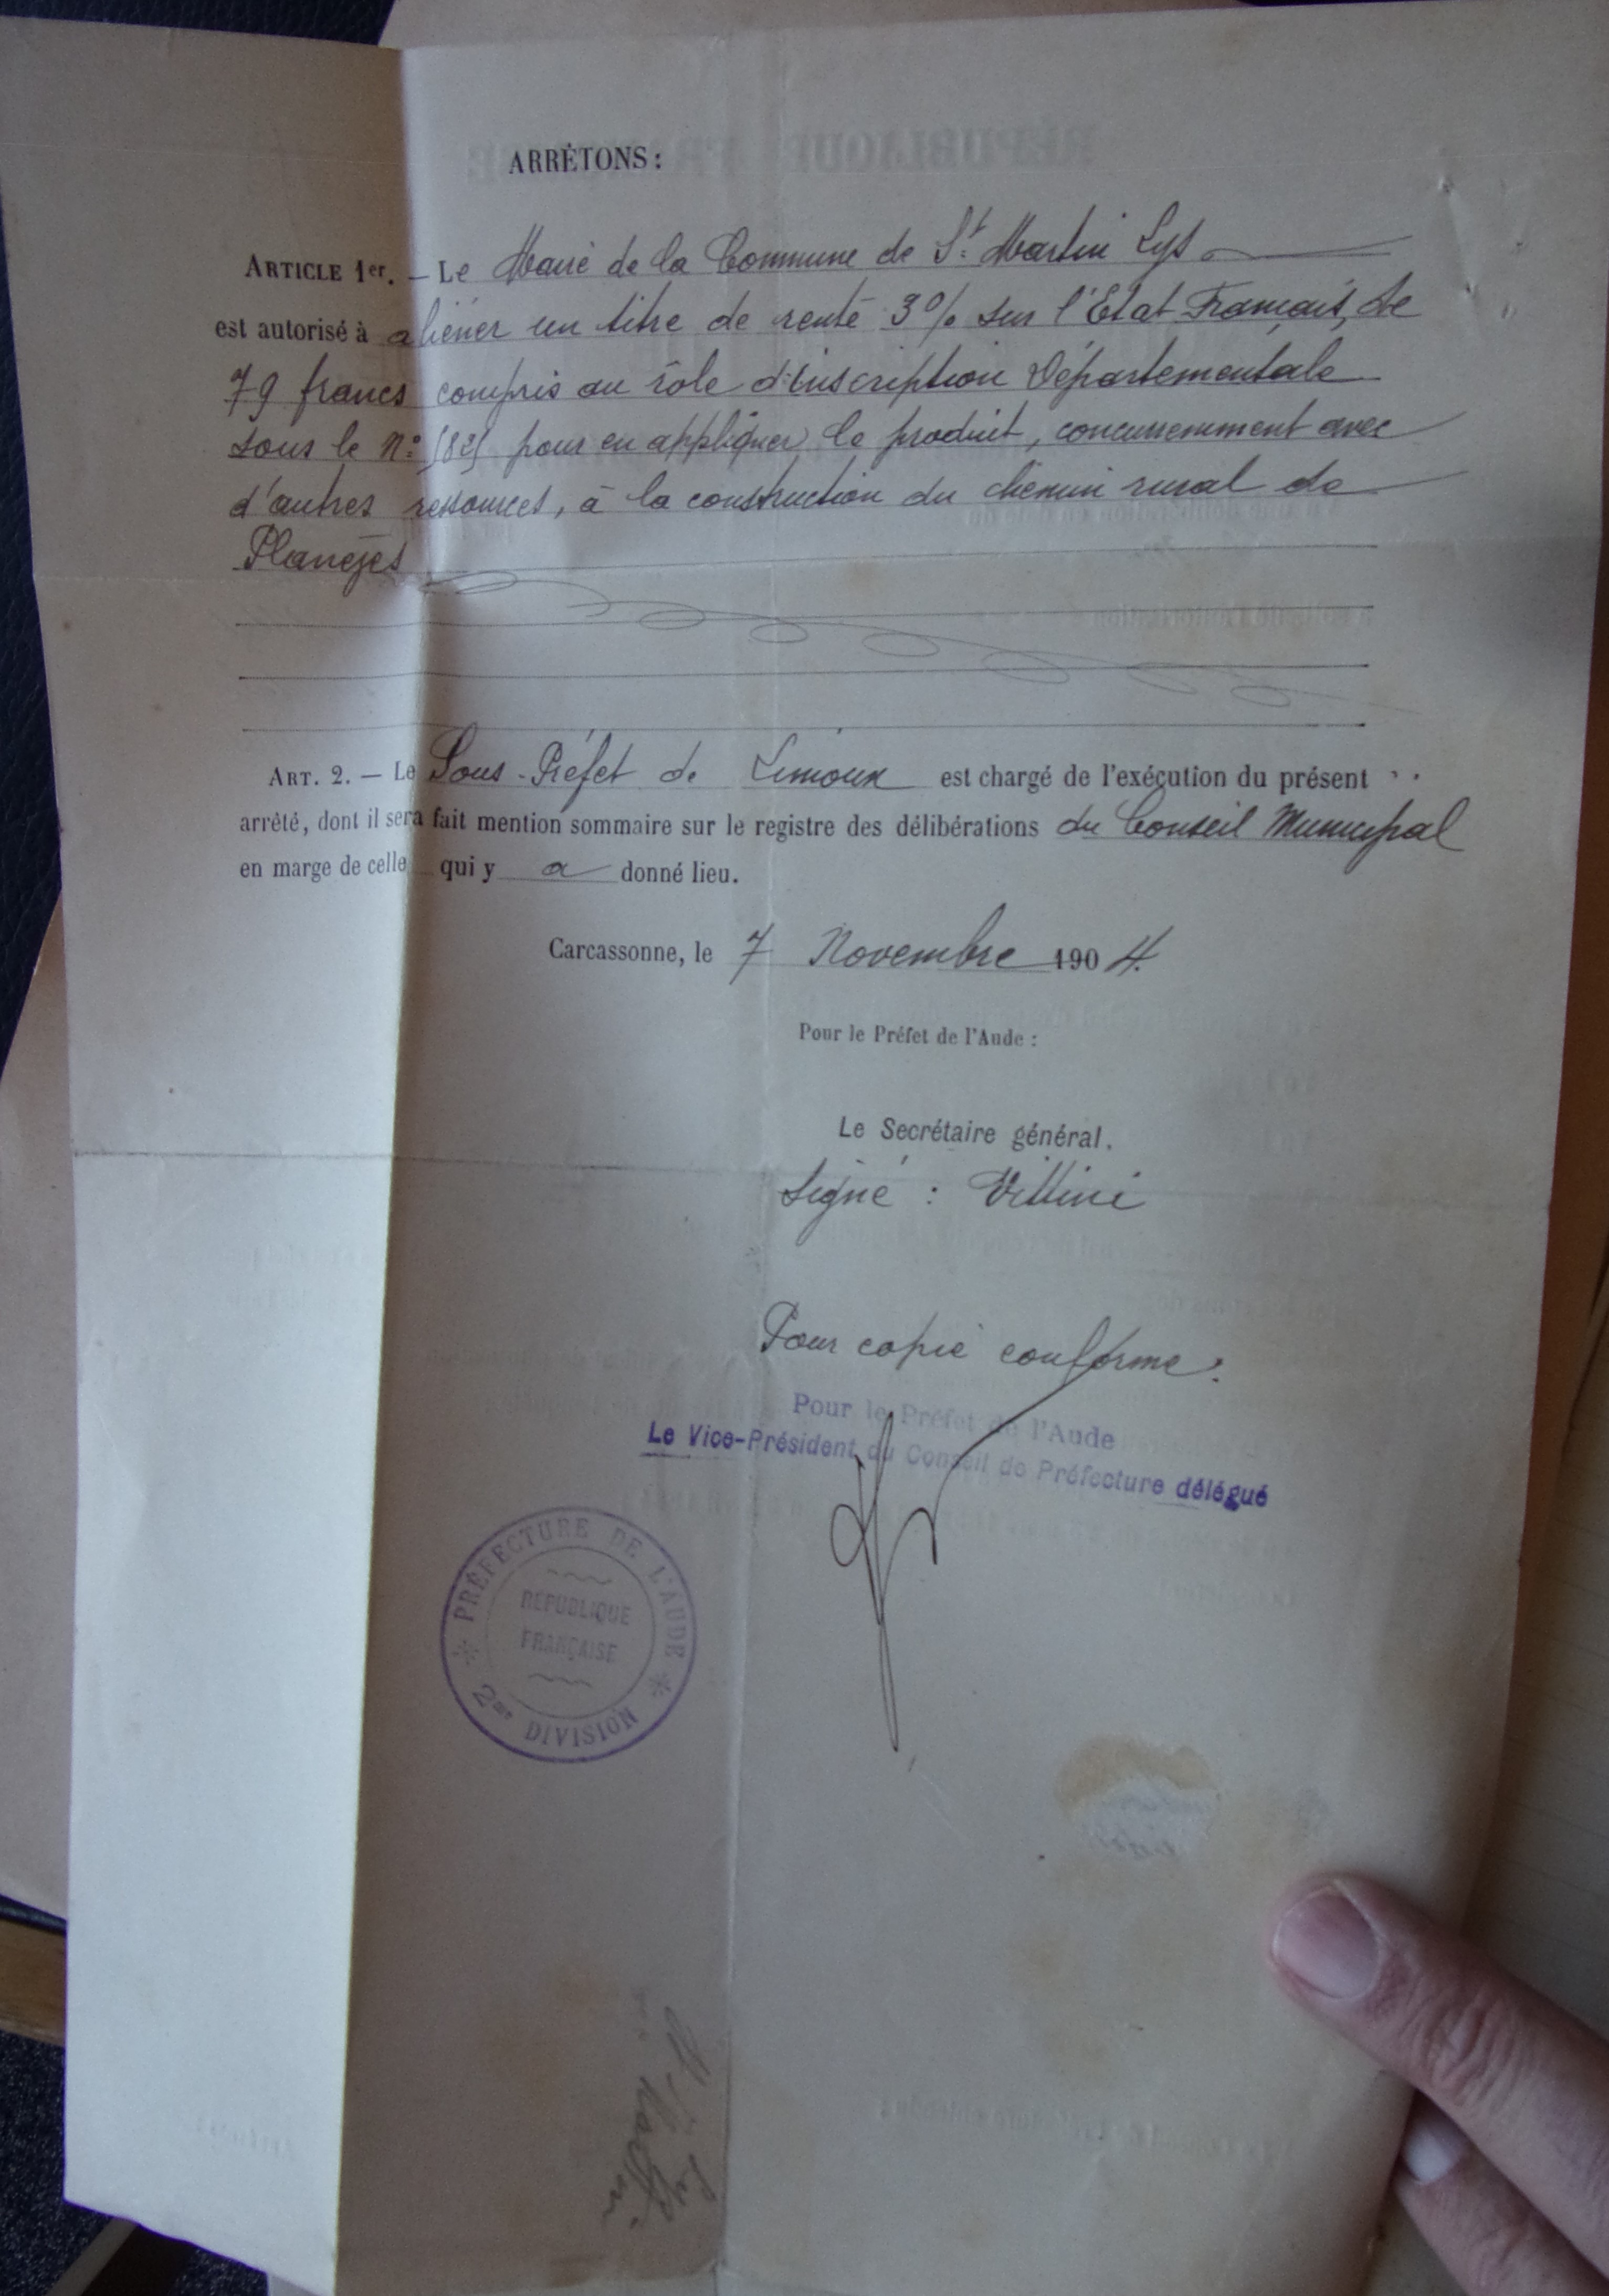 ARRÊTONS :
ARTICLE 1er. — Le Maire de la Commune de St. Martin Lys
est autorisé à aliéner un titre de rente 3% sur l'Etat Français, de
79 francs compris au rôle d'inscription Départementale
sous le N° pour en appliquer le produit, concurremment avec
d'autres ressources, à la construction du chemin rural de
Planezes
ART. 2. — Le Sous-Préfet de Limoux est chargé de l'exécution du présent
arrêté, dont il sera fait mention sommaire sur le registre des délibérations du Conseil Municipal
en marge de celle qui y a donné lieu.
Carcassonne, le 7 Novembre 1904.
Pour le Préfet de l'Aude :
Le Secrétaire général.
Signé : Vittini
Pour copie conforme :
Pour le Préfet de l'Aude
Le Vice-Président du Conseil de Préfecture délégué
PRÉFECTURE DE L'AUDE
RÉPUBLIQUE
FRANÇAISE
2me DIVISION
St Martin
Lys